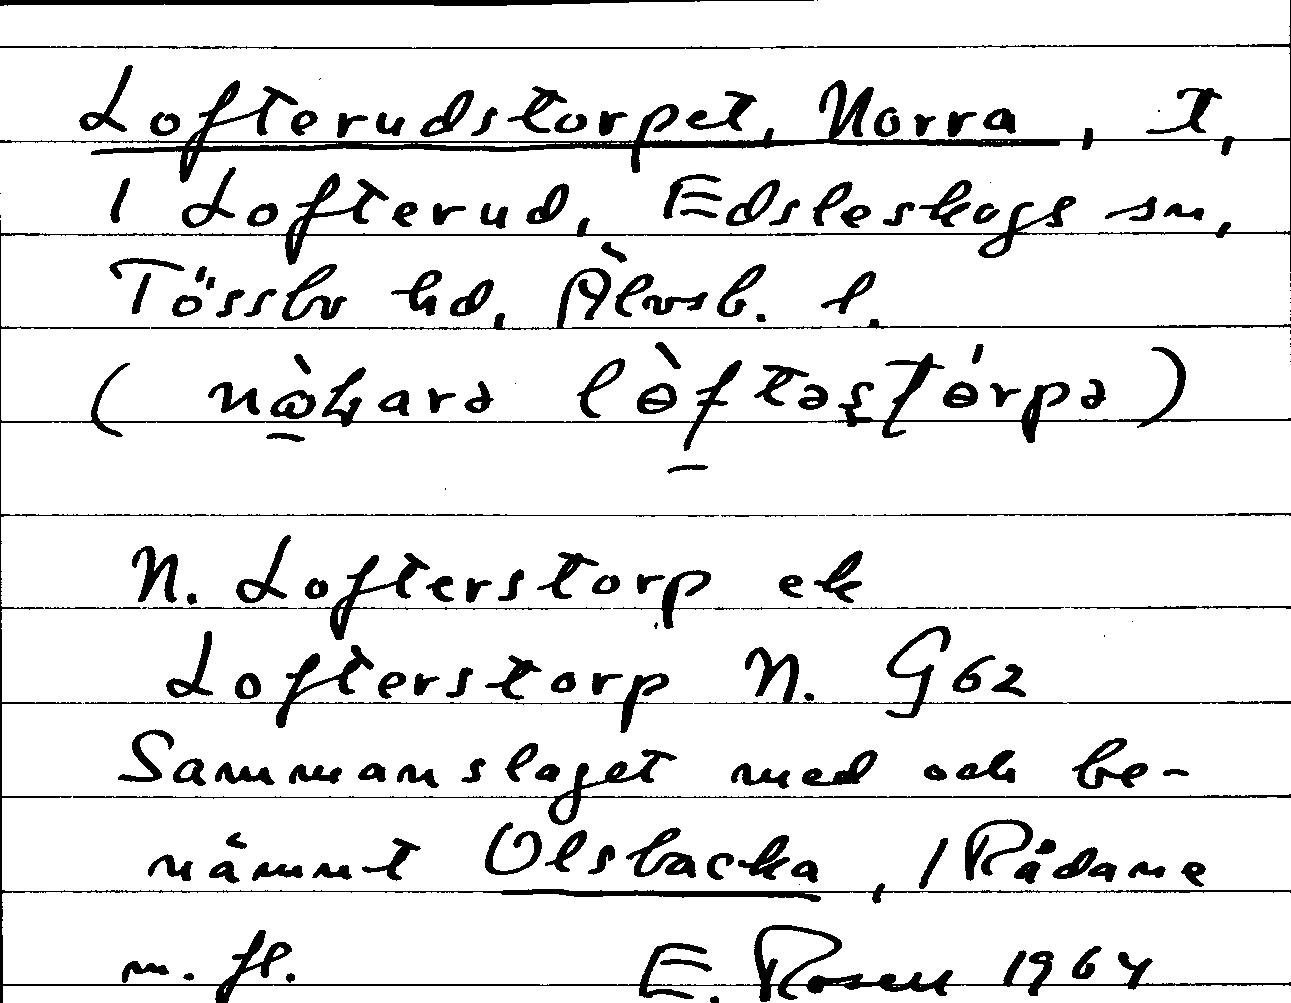 Lofterudstorpet, Norra, t,
1 Lofterud, Edsleskogs sn,
Tössbo hd, Älvsb. l.
N. Lofterstorp ek
Lofterstorp N. G62
Sammanslaget med och be-
nämnt Olsbacka, 1 Rådane
m. fl. E. Rosell 1964